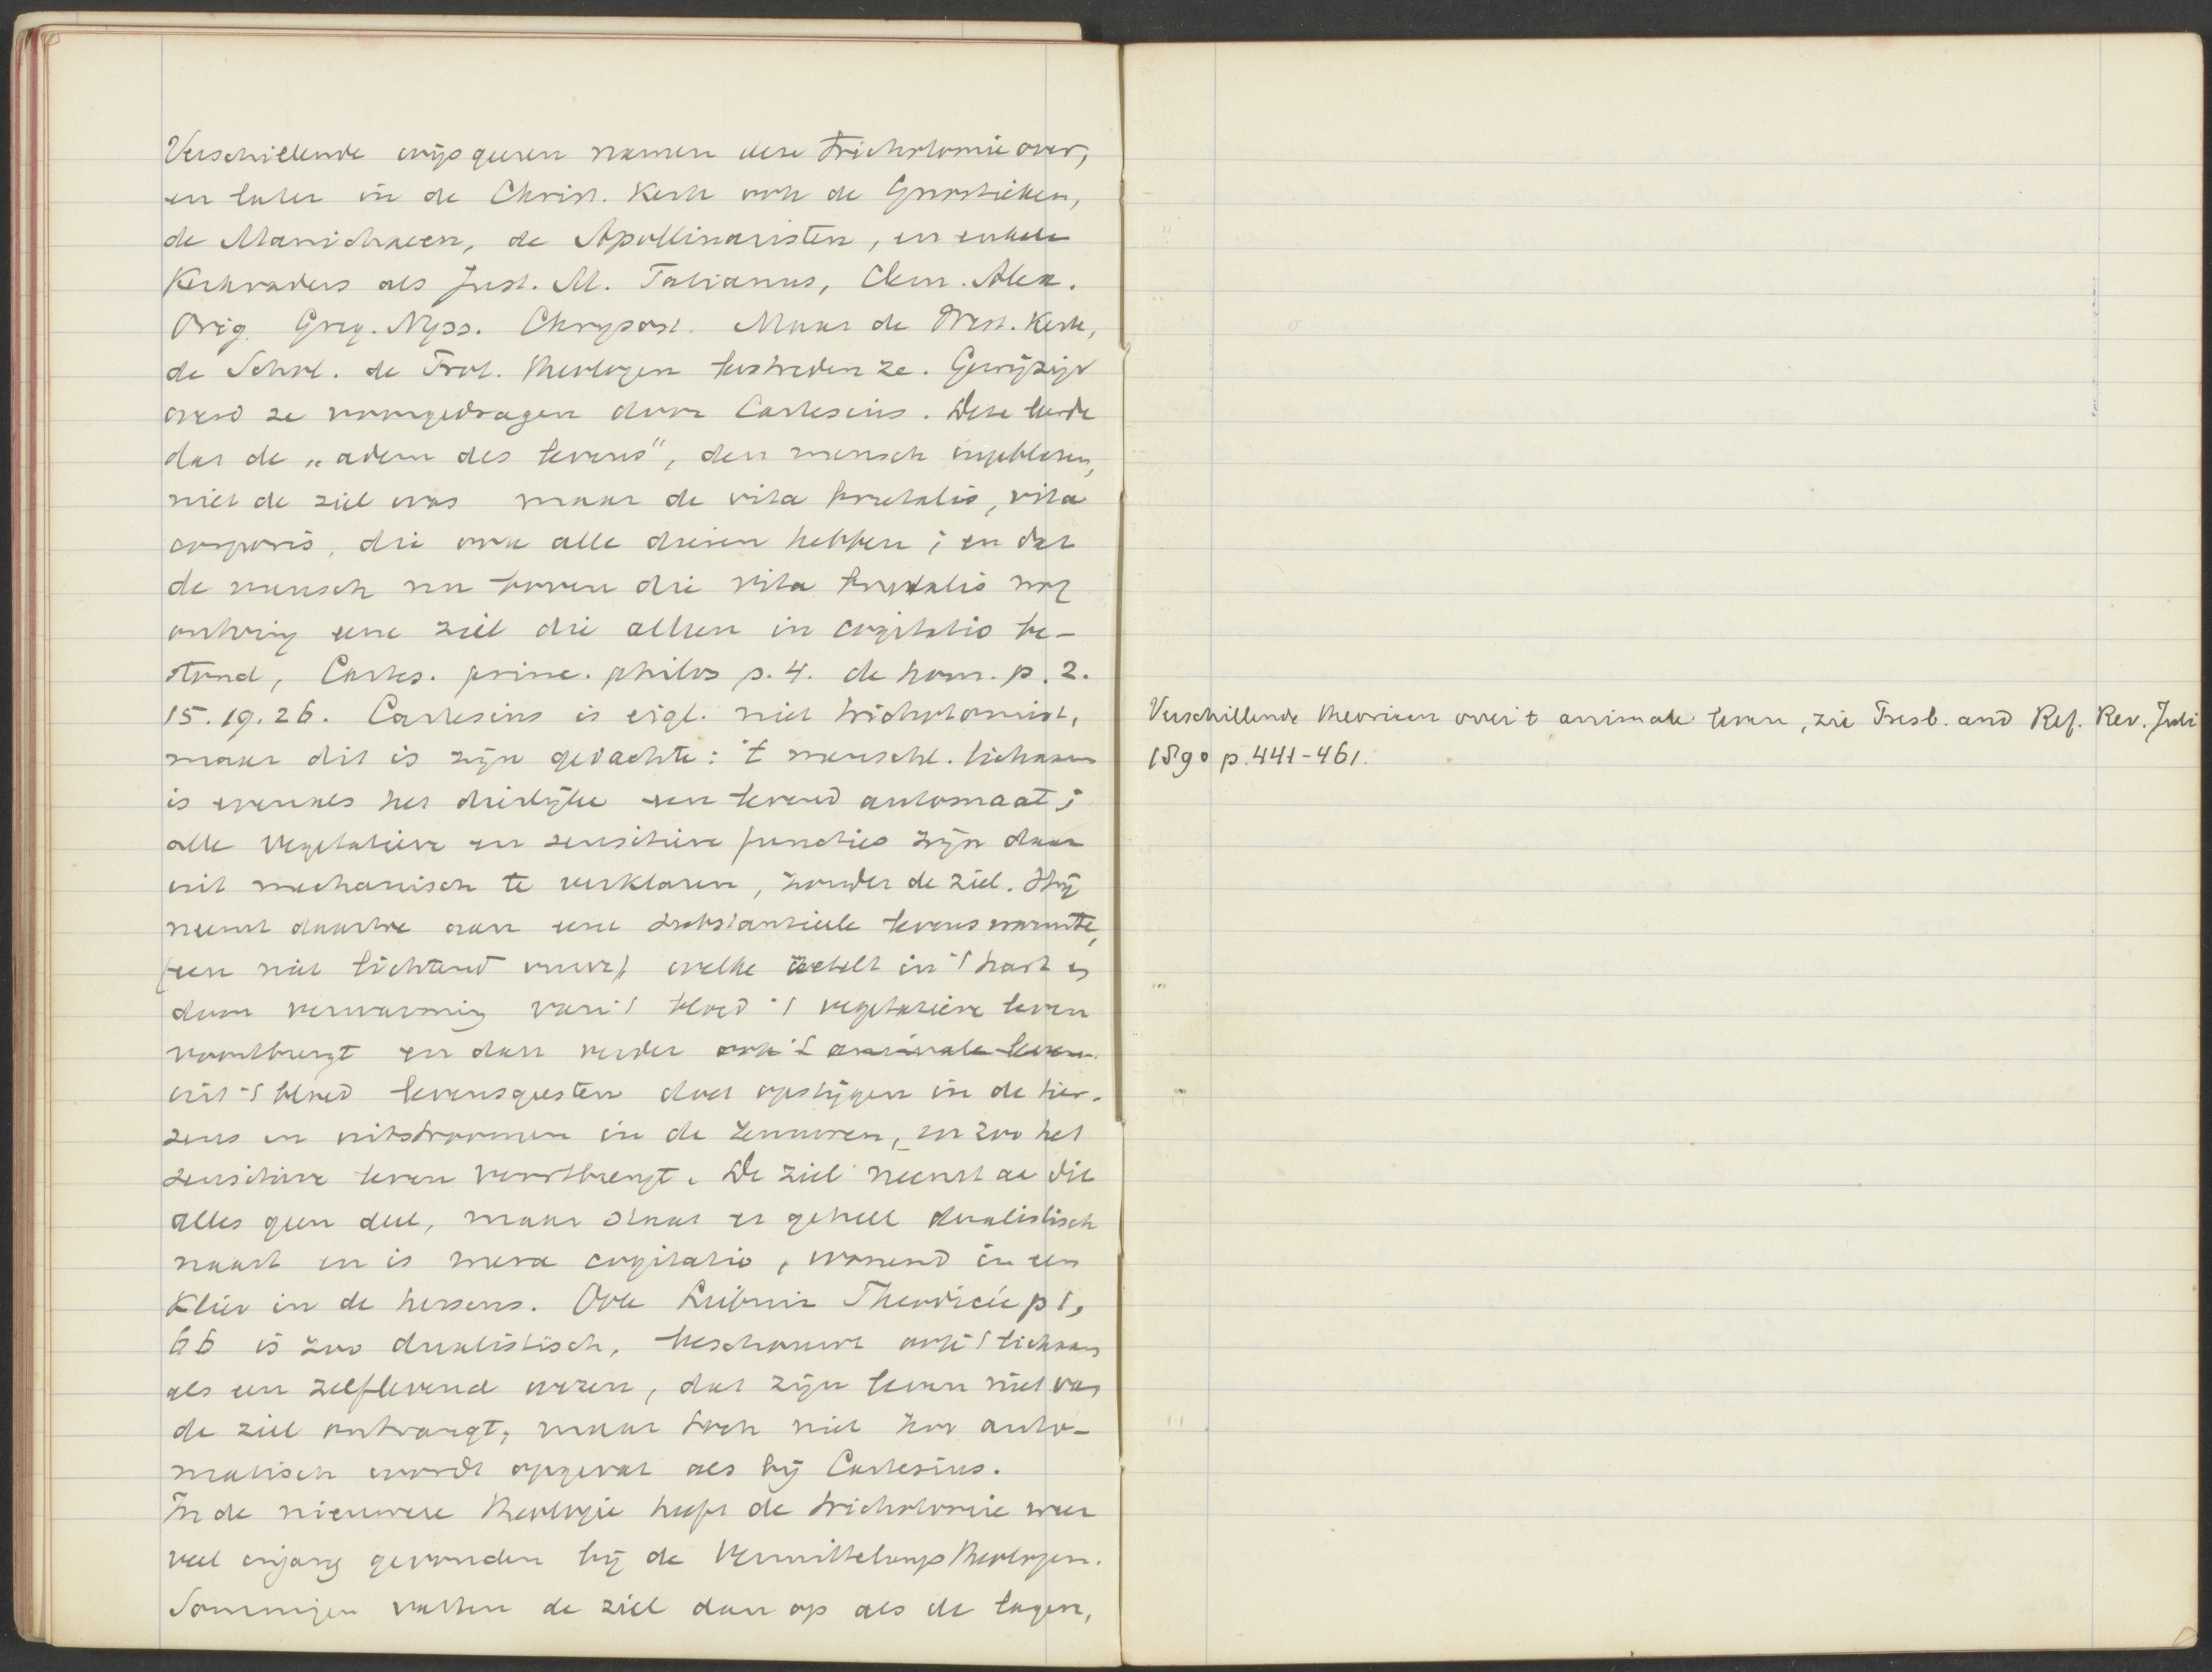 Verschillende wijsgeeren namen deze trichotomie over,
en later in de Christ. Kerk ook de Gnostieken,
de Manichaeen, de Apollinaristen, en enkele
Kerkvaders als Just. M. Tatianus, Clem. Alex.
Orig. Greg. Nyss. Chrysost. Maar de West. Kerk,
de Schol. de Prot. theologen bestreden ze. Gewijzigd
werd ze voorgedragen door Cartesius. Deze leerde
dat de „adem des levens", den mensch ingeblazen,
niet de ziel was maar de vita brutalis, vita
corporis, die ook alle dieren hebben; en dat
de mensch nu boven die vita brutalis nog
ontving eene ziel die alleen in cogitatio be-
stond, Cartes. princ. philos p. 4. de hom. p. 2.
15. 19. 26. Cartesius is eigl. niet trichotomist,
maar dit is zijn gedachte: 't menschl. lichaam
is evenals het dierlijke een levend automaat;
alle vegetatieve en sensitieve functies zijn daar
uit mechanisch te verklaren, zonder de ziel. Hij
neemt daartoe aan eene substantieele levenswarmte,
(een niet lichtend vuur), welke zetelt in 't hart en
door verwarming van 't bloed 't vegetatieve leven
voortbrengt en dan verder ook 't animale leven
uit 't bloed levensgeesten doet opstijgen in de her-
sens en uitstroomen in de zenuwen, en zoo het
sensitieve leven voortbrengt. De ziel neemt aan dit
alles geen deel, maar staat er geheel dualistisch
naast en is mera cogitatio, wonend in een
klier in de hersens. Ook Leibniz Theodicée p 1,
66 is zoo dualistisch, beschouwt ook 't lichaam
als een zelflevend wezen, dat zijn leven niet van
de ziel ontvangt, maar toch niet zoo auto-
matisch wordt opgevat als bij Cartesius.
In de nieuwere theologie heeft de trichotomie weer
veel ingang gevonden bij de Vermittelungstheologen.
Sommigen vatten de ziel dan op als de lagere,
Verschillende theorieen over 't animale leven, zie Presb. and Ref. Rev. Juli
1890 p. 441-461.